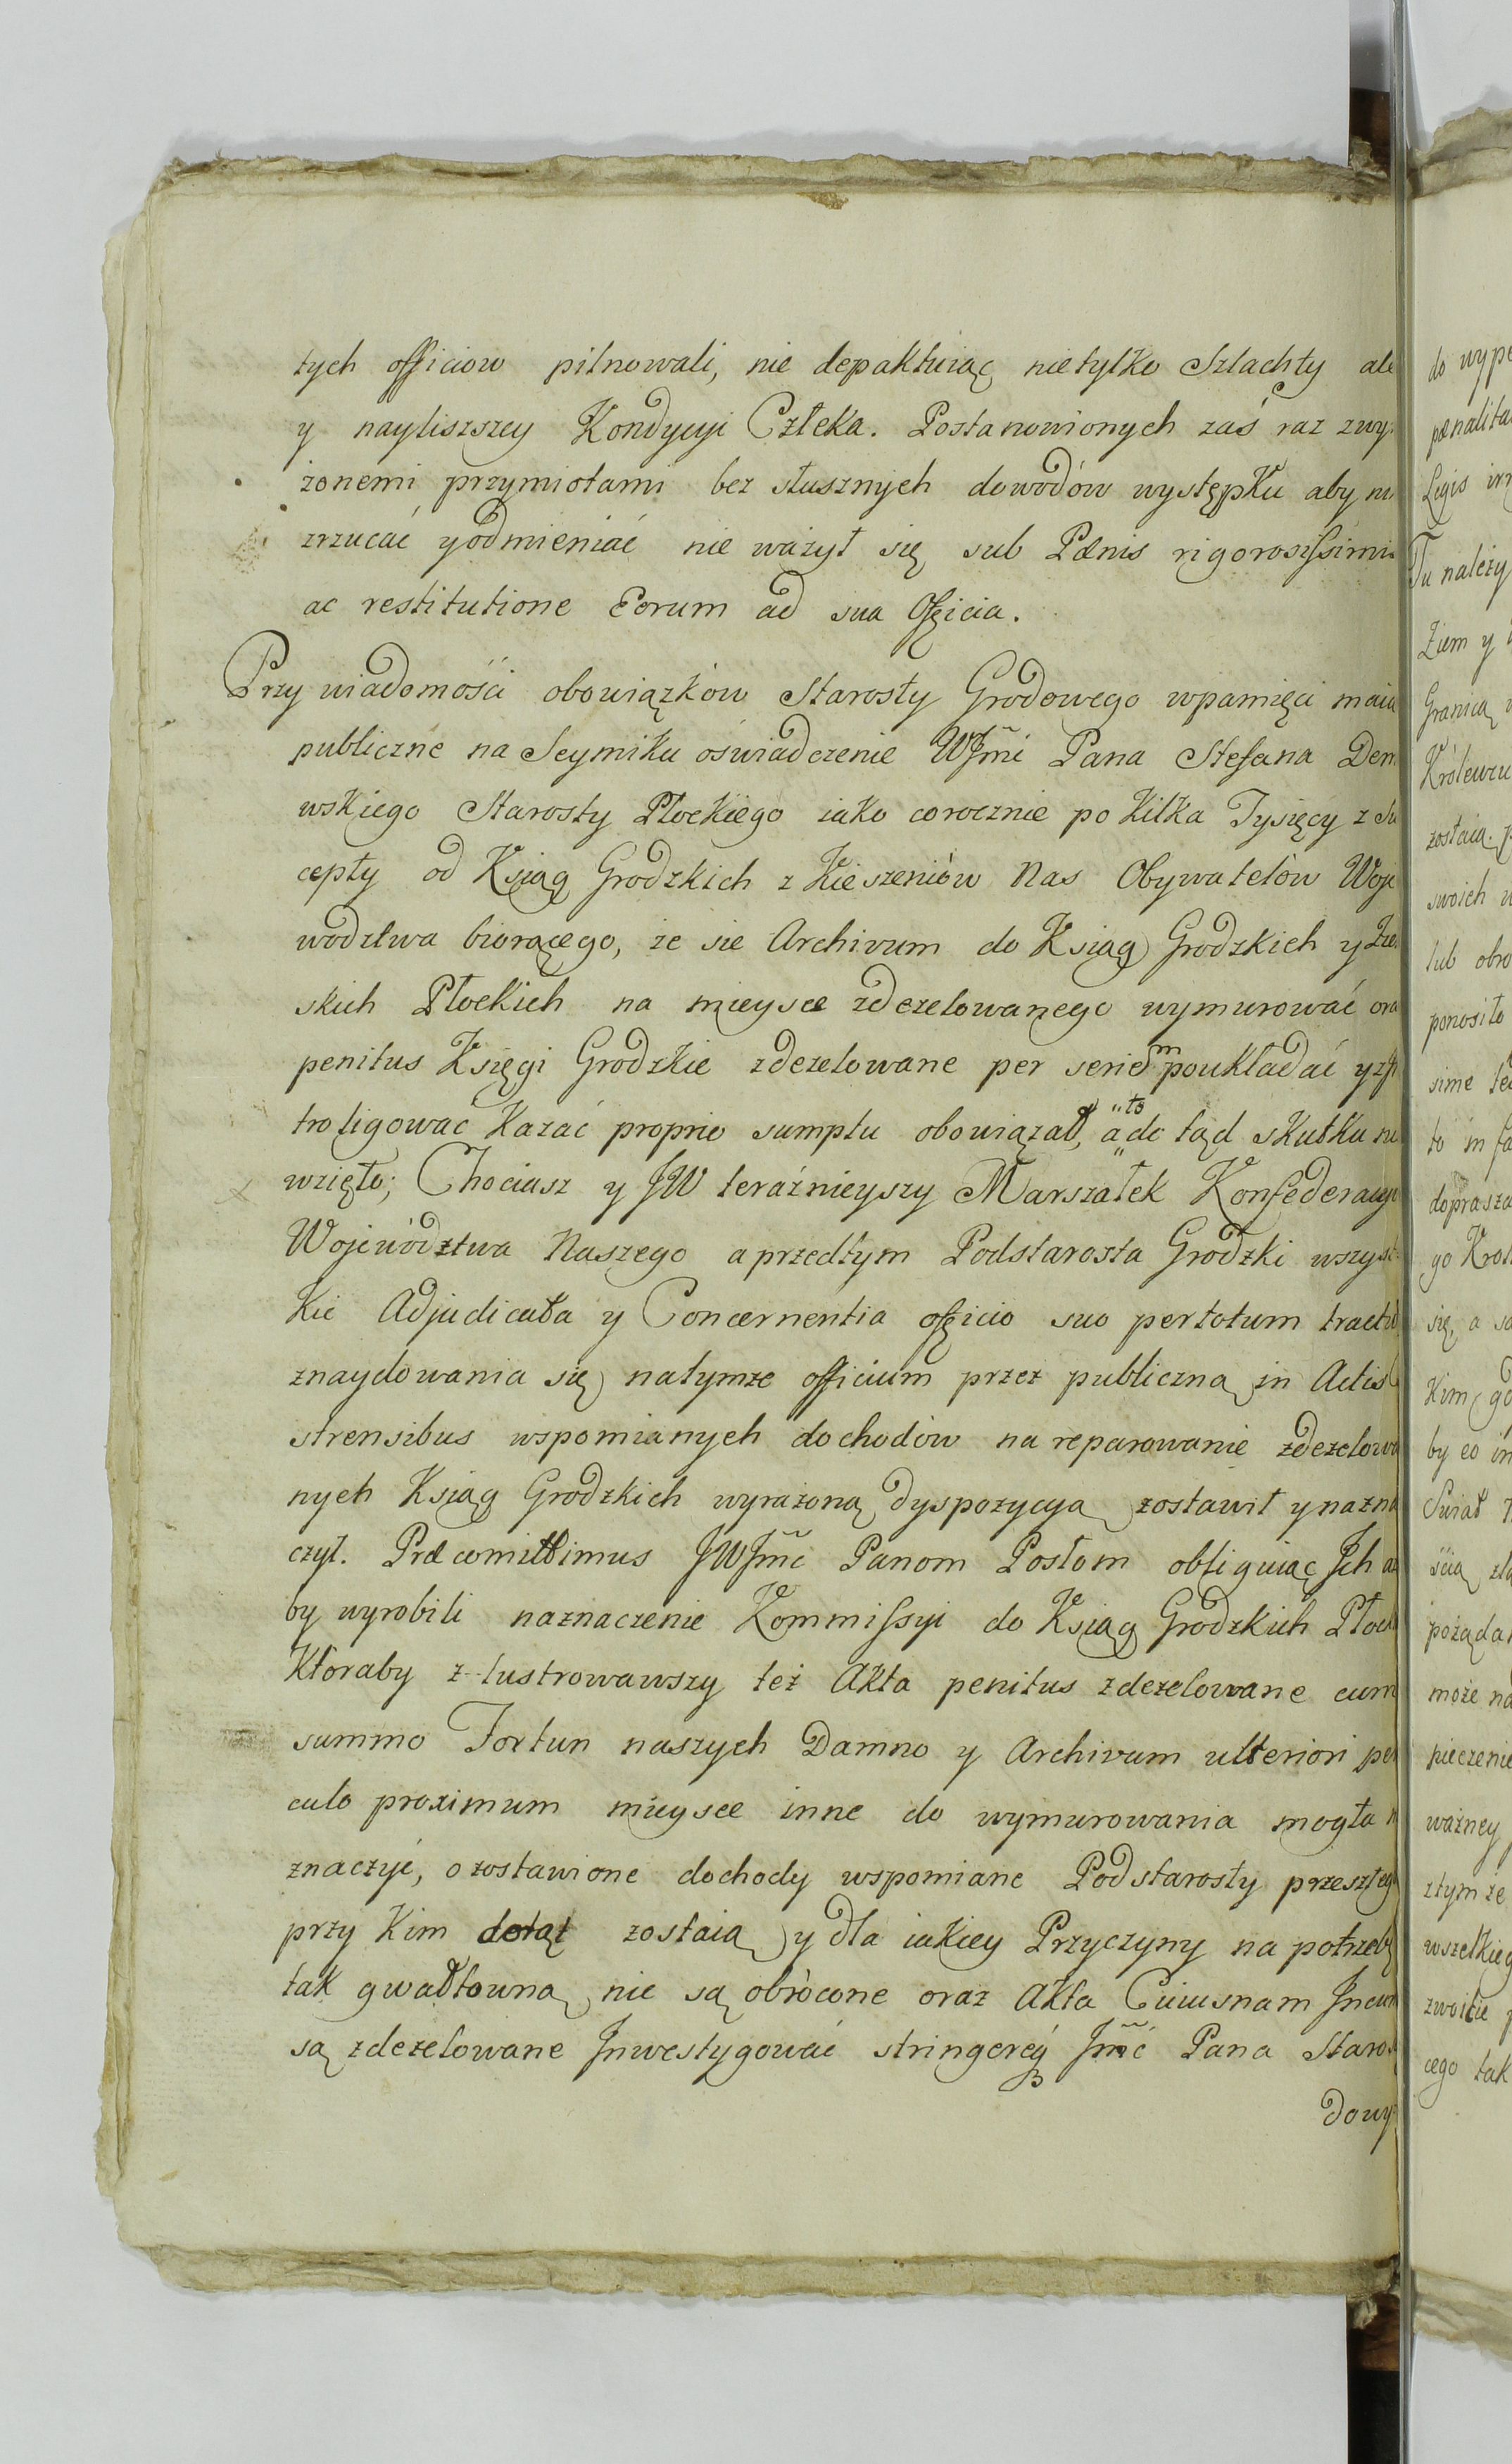 tych officiow pilnowali, nie depaktuiąc nietylko Szlachty ale
y nayliszszey Kondycyi Człeka. Postanowionych zaś raz zwy:
żonemi przymiotami bez słusznych dowodów występku aby
zrzucać y odmieniać nie ważył się sub Pænis rigorosissimi
ac restitutione Eorum ad sua Officia.
Przy wiadomości obowiązków Starosty Grodowego w pamięci maią
publiczne na Seymiku oświadczenie WJmci Pana Stefana Dem
wskiego Starosty Płockiego iako corocznie po kilka Tysięcy z
cepty od Ksiąg Grodzkich z Kieszeniów Nas Obywatelów Woje
wodztwa biorącego, że sie Archivum do Ksiąg Grodzkich y
skich Płockich na mieysce zdezelowanego wymurować ora
penitus Księgi Grodzkie zdezelowane per seriem poukładać y
troligować kazać proprio sumptu obowiązał, a to do tąd skutku
wzięło; Chociasz y JW teraźnieyszy Marszałek Konfederacyi
Województwa Naszego a przedtym Podstarosta Grodzki wszyst
kie Adjudicata y Concernentia officio suo per totum tractu
znaydowania się na tymże officium przez publiczną in Actis
strensibus wspomianych dochodów na reparowanie zdezelowa
nych Ksiąg Grodzkich wyrażoną dyspozycyą zostawił y nazna
czył. Præcomittimus JWJmć Panom Posłom obliguiąc Jch a
by wyrobili naznaczenie Kommissyi do Ksiąg Grodzkich Płock
Ktoraby z lustrowawszy też Akta penitus zdezelowane cum
summo Fortun naszych Damno y Archivum ulteriori per
culo proximum mieysce inne do wymurowania mogła n
znaczyć, o zostawione dochody wspomiane Podstarosty przeszłeg
przy Kim dotąt zostaią y dla iakiey Przyczyny na potrzeb
tak gwałtowną nie są obrócone oraz Akta Cuiusnam Jncur
są zdezelowane Jnwestygować stringereq3 Jmć Pana Staros
do wy
do wype
pænalita
Legis
Tu należy
Ziem y
Granicą
Królewcu
zostaią
swoich w
lub obro
ponosiło
sime
to in fa
doprasza
go Krol
się, a
Kim
by eo in
Swiat
ścią
pożąda
może na
pieczenie
ważney
ztym że
wszelkieg
zwoicie p
cego tak